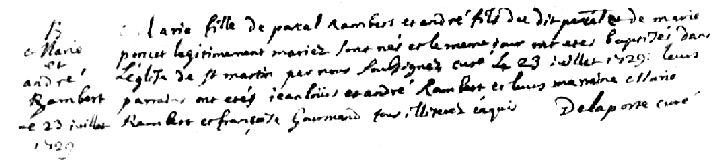 B
Marie
et
andré
Rambert
le 23 juillet
1729
Marie fille de pascal Rambert et andré fils du dit pascal et de marie
poncet legitimement mariez sont nés et le meme jour ont etes baptisés dans
l'église de st martin par nous soussignez curé le 23 juillet 1729: leurs
parrains ont etés jean louis et andré Rambert et leurs marraine Marie
Rambert et françoise Gourmand tous illiterez enquis Delaporte curé